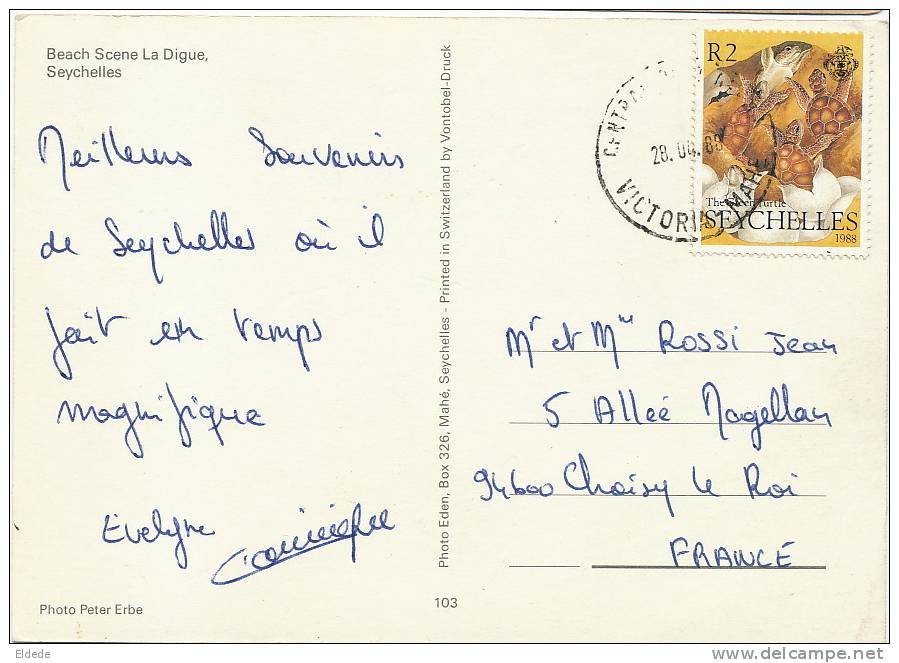 Beach Scene La Digue,
Seychelles
Meilleurs Souvenirs
de Seychelles où il
fait un temps
magnifique
Evelyne
Photo Peter Erbe
103
Photo Eden, Box 326, Mahé, Seychelles - Printed in Switzerland by Vontobel-Druck
R2
The Green Turtle
SEYCHELLES
1988
VICTORIA MAHE
Mr et Mme Rossi Jean
5 Alleé Magellan
94600 Choisy le Roi
FRANCE
Eldede
www.delcampe.net